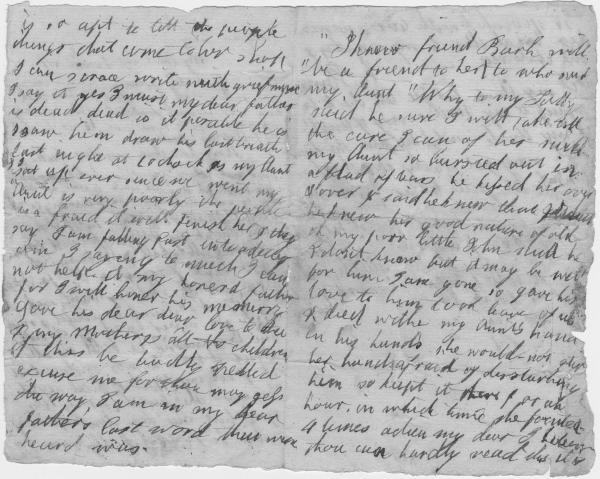 is so apt to tell the people
things that come to her shop
I can scarce write with grief must
I say it yes I must my dear father
is dead dead is it posable he is
I saw him draw his last breath
last night at 10 clock as my Aunt
I sat up ever since we went my
Aunt is very poorly the people
is a fraid it will finish her & they
say I am falling fast into a decay
am I agoing to much I can
not help it my honerd father
for I will honer his memory
gave his dear dear love to thee
& my Mothers all to children
if this be badly spelled
excuse me for thou may gess
the way I am in my dear
father's last word that was
heard was
"I know friend Bush will
"be a friend to her to who said
my Aunt "Why to my Sally
said he sure I will take all
the care I can of her said
my Aunt so bursted out in
a flud of tears he kissed her over
& over & said he knew that
he knew her good nature of old
oh my poor little John said he
I dont know but it may be well
for him I am gone so gave his
love to him took leave of us
& died withe my Aunts hand
in his hands she would not stir
her hand afraid of disturbing
him so kept it there for an
hour, in which time she fainted
4 times adieu my dear I believe
thou can hardly read this it is